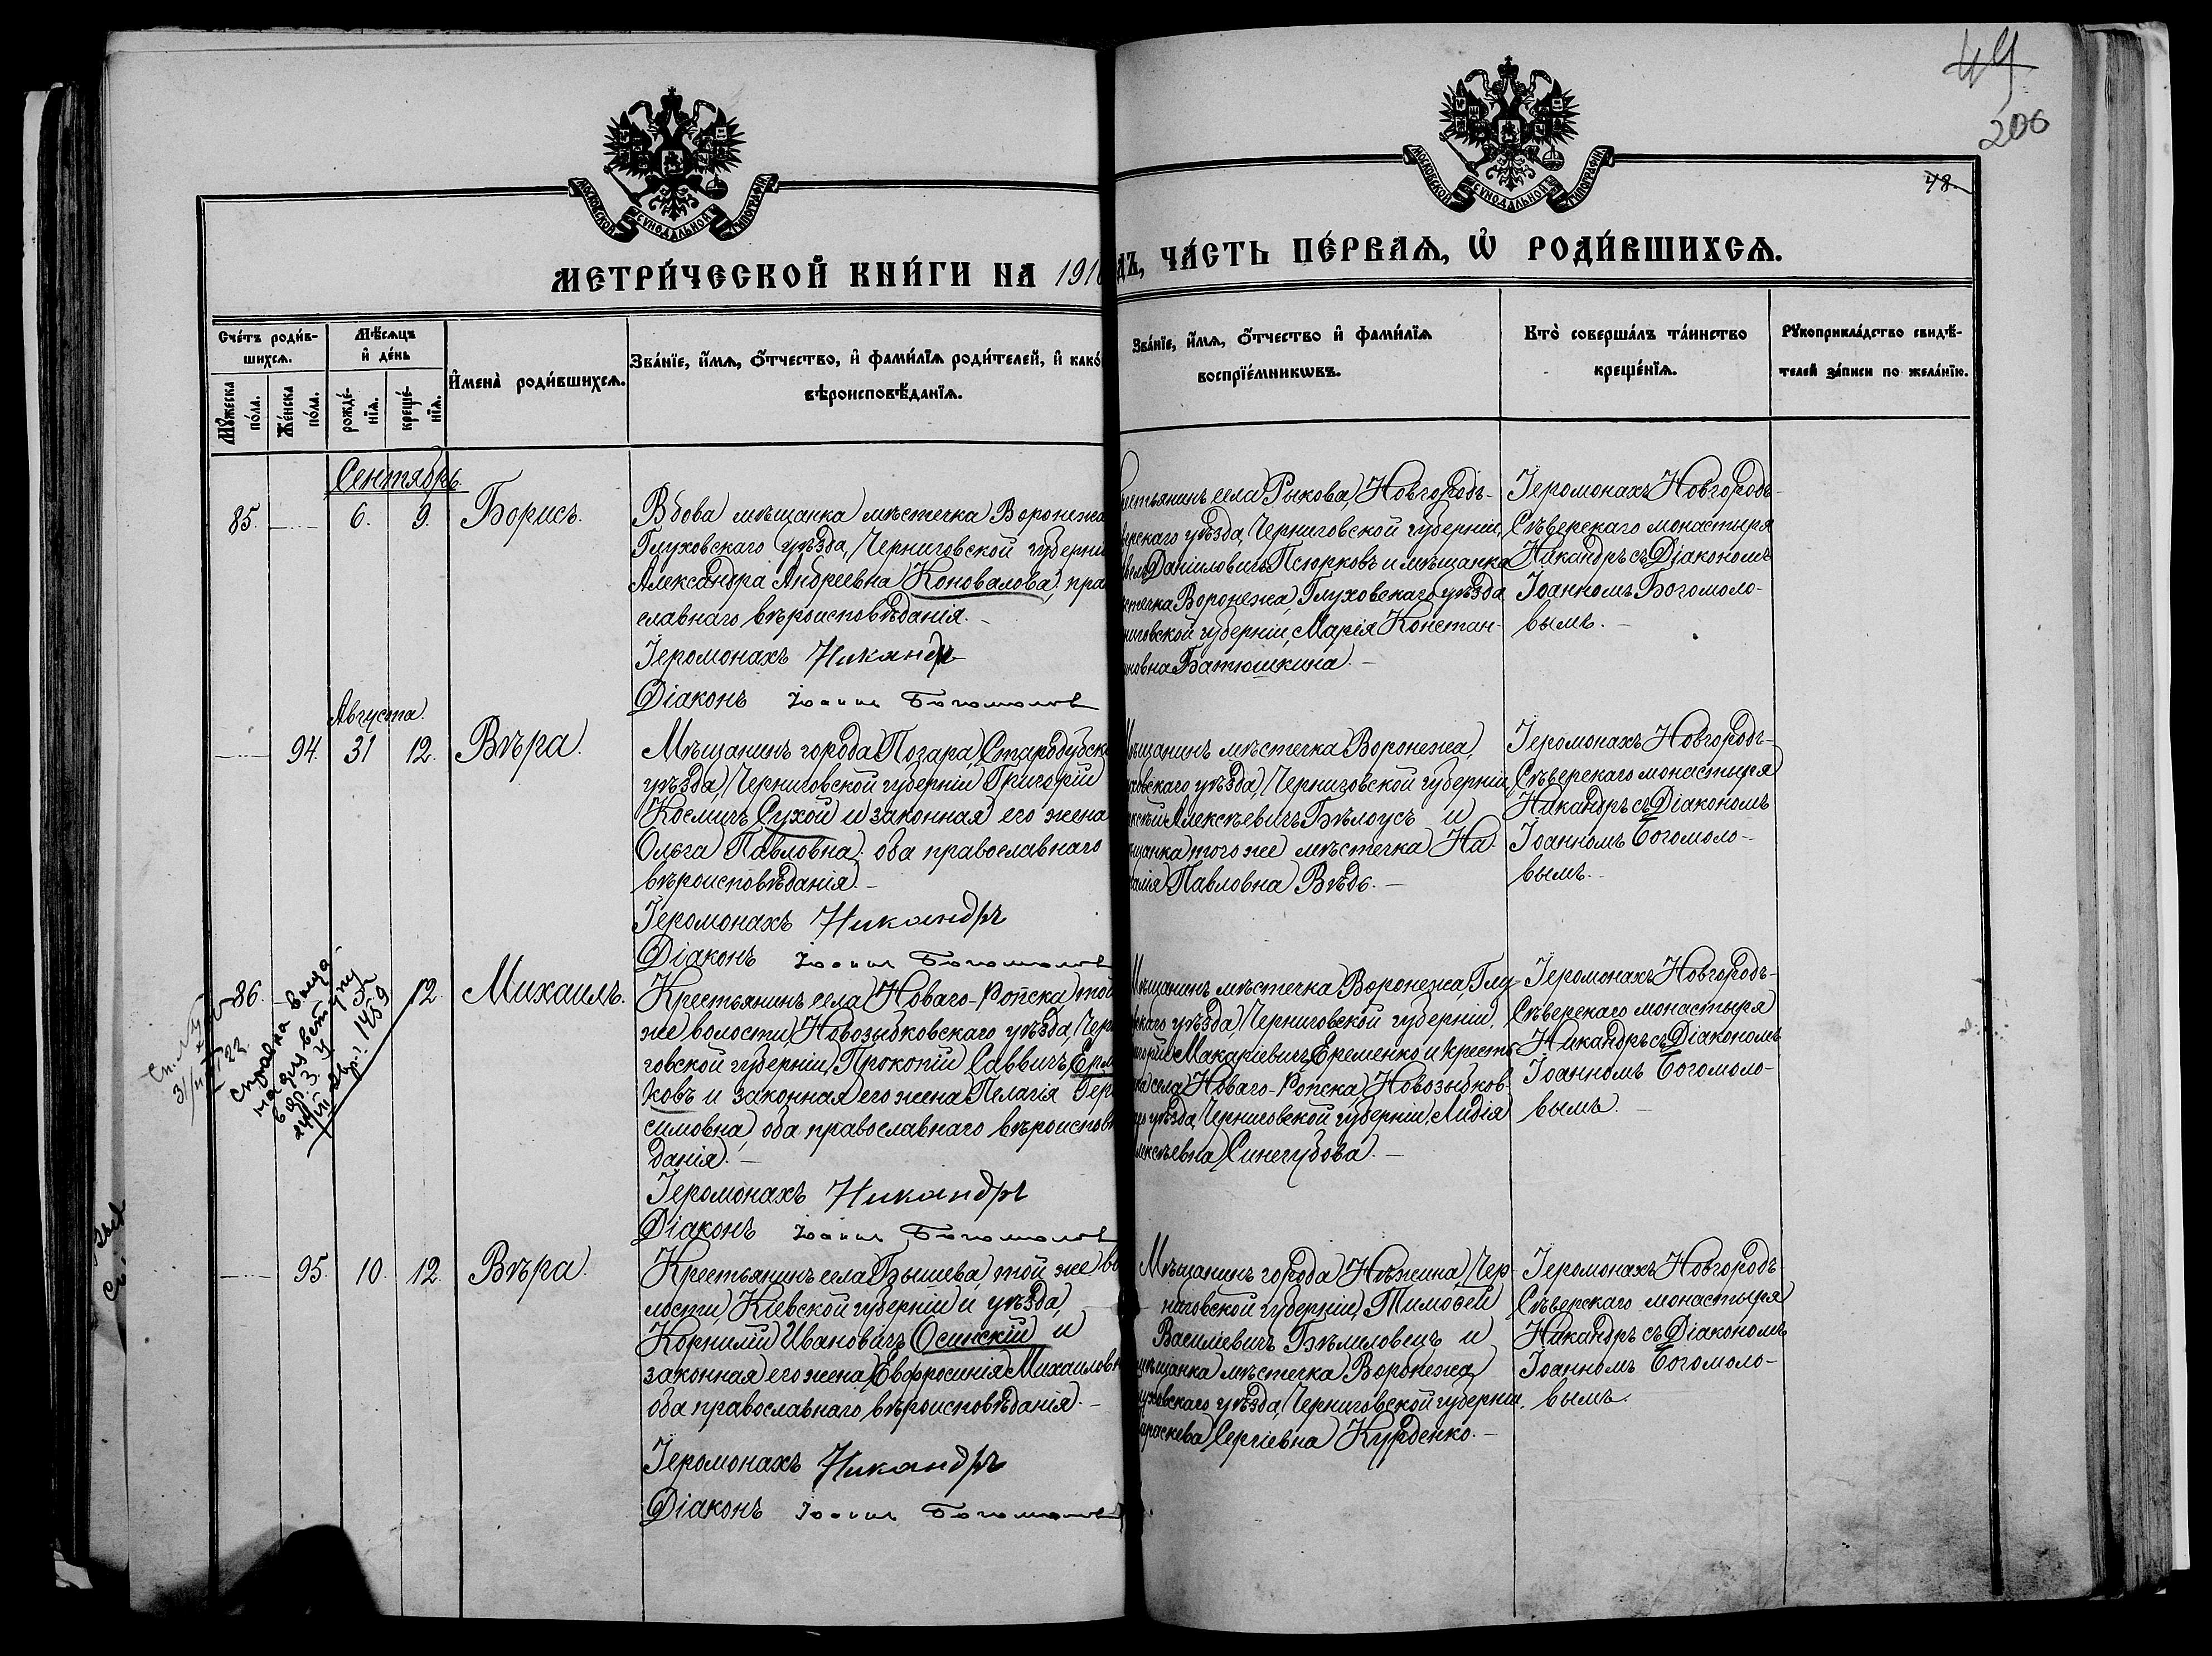 49
200
48.
МОСКОВСКОЙ СѴНОДАЛЬНОЙ ТИПОГРАФІИ
МОСКОВСКОЙ СѴНОДАЛЬНОЙ ТИПОГРАФІИ
МЕТРИ́ЧЕСКОЙ КНИ́ГИ НА 191
ДЪ, ЧА́СТЬ ПЕ́РВАѦ, Ѡ҆ РОДИ́ВШИХСѦ.
Сче́тъ роди́в-
шихсѧ.
Мꙋ́жеска
по́ла.
Же́нска
по́ла.
Мѣ́сѧцъ
и҆ де́нь
рожде́-
нїѧ.
креще́-
нїѧ.
И҆мена̀ роди́вшихсѧ.
Зва́нїе, и҆́мѧ, ѻ҆́тчество, и҆ фами́лїѧ роди́телей, и҆ како́
вѣроисповѣ́данїѧ.
Зва́нїе, и҆́мѧ, ѻ҆́тчество и҆ фами́лїѧ
воспрїе́мникѡвъ.
Кто̀ соверша́лъ та́инство
креще́нїѧ.
Рꙋкоприкла́дство свидѣ́-
телей за́писи по жела́нїю.
Сентябрь.
85. 6. 9. Борисъ.
Вдова мѣщанка мѣстечка Воронежа
Глуховскаго уѣзда, Черниговской губерні
Александра Андреевна Коновалова, пра
славнаго вѣроисповѣданія.-
Іеромонахъ Никандр
Діаконъ Іоаннъ Богомолов
естьянинъ села Рыкова, Новгородъ-
рскаго уѣзда, Черниговской губерніи,
Даніиловичъ Псюрковъ и мѣщанка
стечка Воронежа, Глуховскаго уѣзда
ниговской губерніи, Марія Констан-
новна Батюшкина.-
Іеромонахъ Новгородъ-
Сѣверскаго монастыря
Никандръ съ Діакономъ
Іоанномъ Богомоло-
вымъ.-
Августа.
94. 31 12. Вѣра.
Мѣщанинъ города Погара, Стародубск
уѣзда, Черниговской губерніи Григорій
Космичъ Сухой и законная его жена
Ольга Павловна, оба православнаго
вѣроисповѣданія.-
Іеромонахъ Никандръ
Діаконъ Іоаннъ Богомолов
мѣщанинъ мѣстечка Воронежа,
ховскаго уѣзда, Черниговской губерніи
ксѣй Алексѣевичъ Бѣлоусъ и
щанка того же мѣстечка На-
алія Павловна Вѣдь.-
Іеромонахъ Новгородъ-
Сѣверскаго монастыря
Никандръ съ Діакономъ
Іоанномъ Богомоло-
вымъ.-
86. 12. Михаилъ.
справка
1459
Крестьянинъ села Новаго-Ропска той
же волости, Новозыбковскаго уѣзда, Черн
говской губерніи, Прокопій Саввичъ Ерма
ковъ и законная его жена Пелагія Гер
симовна, оба православнаго вѣроисповѣ
данія.-
Іеромонахъ Никандръ
Діаконъ Іоаннъ Богомолов
Мѣщанинъ мѣстечка Воронежа, Глу-
скаго уѣзда, Черниговской губерніи,
горій Макаріевичъ Еременко и кресть
ка села Новаго-Ропска, Новозыбков-
го уѣзда, Черниговской губерніи, Лидія
лексѣевна Синегубова.-
Іеромонахъ Новгородъ-
Сѣверскаго монастыря
Никандръ съ Діакономъ
Іоанномъ Богомоло-
вымъ.-
95. 10. 12. Вѣра.
Крестьянинъ села Бышева, той же во
лости, Кіевской губерніи и уѣзда,
Корнилій Ивановичъ Осинскій и
законная его жена Евфросинія Михаиловн
оба православнаго вѣроисповѣданія.-
Іеромонахъ Никандръ
Діаконъ Іоаннъ Богомолов
Мѣщанинъ города Нѣжина, Чер-
ниговской губерніи, Тимоѳей
Василіевичъ Бѣлиловецъ и
мѣщанка мѣстечка Воронежа,
уховскаго уѣзда, Черниговской губерніи,
араскева Сергіевна Курденко.-
Іеромонахъ Новгородъ-
Сѣверскаго монастыря
Никандръ съ Діакономъ
Іоанномъ Богомоло-
вымъ.